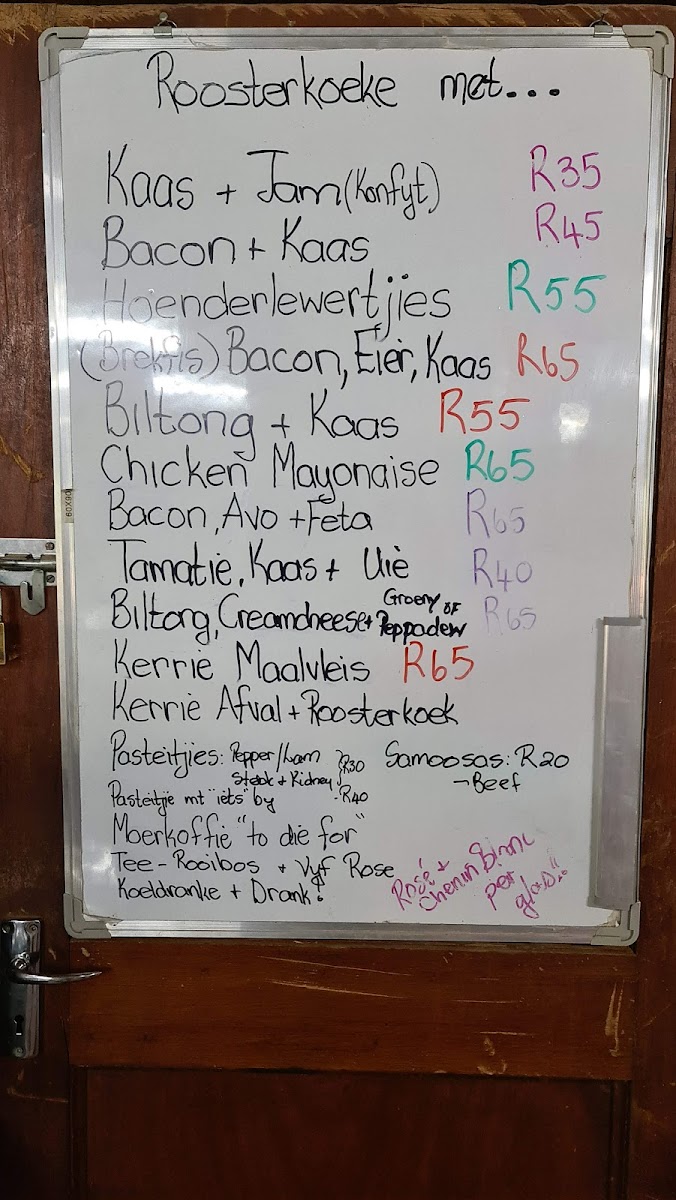 Roosterkoeke met...
Kaas + Jam (Konfyt) R35
Bacon + Kaas R45
Hoenderlewertjies R55
(Brekfis) Bacon, Eier, Kaas R65
Biltong + Kaas R55
Chicken Mayonaise R65
Bacon, Avo + Feta R65
Tamatie, Kaas + Uie R40
Biltong, Creamcheese + Groeny of Peppadew R65
Kerrie Maalvleis R65
Kerrie Afval + Roosterkoek
Pasteitjies: Pepper/Lam R30 Samoosas: R20
Steak + Kidney - Beef
Pasteitjie mt "iets" by - R40
Moerkoffie "to die for"
Tee - Rooibos + Vyf Rose
Koeldranke + Drank!
Rosé +
per glas